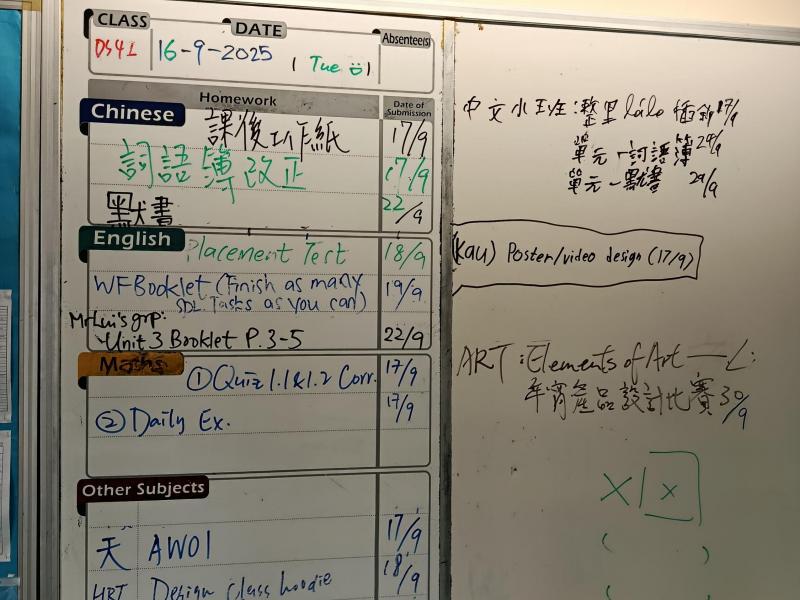 CLASS DATE Absentee(s)
DS4L 16-9-2025 (Tue)
Chinese Homework Date of Submission
課後工作紙 17/9
詞語簿改正 17/9
默書 22/9
English Placement Test 18/9
WF Booklet (Finish as many 19/9
SDL Tasks as you can)
Mr Lui's grp:
Unit 3 Booklet P. 3-5 22/9
Maths ① Quiz 1.1&1.2 Corr. 17/9
② Daily Ex. 17/9
Other Subjects
天 AW01 17/9
HRT Design class hoodie 18/9
中文小班: 17/9
單元一詞語簿 29/9
單元一默書 29/9
(KAU) Poster/video design (17/9)
ART: Elements of Art — L:
年宵產品設計比賽 30/9
X | X
( )